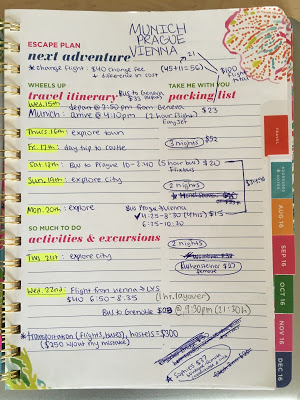 MUNICH
PRAGUE
VIENNA
ESCAPE PLAN
next adventure
* change flight: $40 change fee
+ difference in cost
(45+11=56)
21
$100
flight
total
WHEELS UP
travel itinerary
Bus to Geneva
TAKE ME WITH YOU
packing list
Wed. 15th: depart @ 2:50 pm from Geneva
$23
Munich: arrive @ 4:10pm (2 hour flight)
EasyJet
Thurs. 16th: explore town
3 nights
$52
Fri. 17th: day trip to castle
Sat. 18th: Bus to Prague 10-2:40 (5 hour bus) $20
Flixbus
Sun. 19th: explore City
2 nights
Mon. 20th: explore
Bus Prague → Vienna
4:25-8:30 (4 hrs) $15
6:15-10:30
SO MUCH TO DO
activities & excursions
2 nights
Tues. 21st: explore city
Ruthensteiner $37
Wed. 22nd: Flight from Vienna → LYS
$40 6:50-8:35
(1 hr. layover)
Bus to Grenoble
@ 9:30pm (21:30h)
* transportation (flights, buses), hostels = $300
($250 w/out my mistake)
TRAVEL
AUG 16
SEP 16
OCT 16
NOV 16
DEC 16